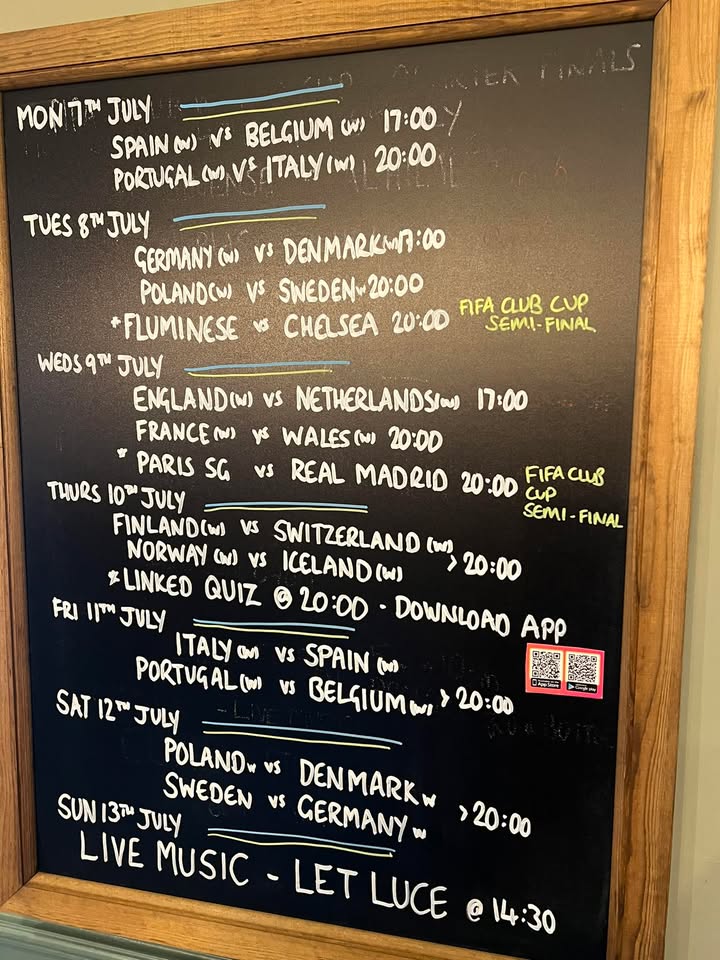 QUARTER FINALS
MON 7TH JULY
SPAIN(W) VS BELGIUM (W) 17:00
PORTUGAL(W) VS ITALY(W) 20:00
TUES 8TH JULY
GERMANY(W) VS DENMARK(W)17:00
POLAND(W) VS SWEDENW 20:00
*FLUMINESE VS CHELSEA 20:00 FIFA CLUB CUP
SEMI-FINAL
WEDS 9TH JULY
ENGLAND(W) VS NETHERLANDS(W) 17:00
FRANCE(W) VS WALES(W) 20:00
* PARIS SG VS REAL MADRID 20:00 FIFA CLUB
CUP
SEMI-FINAL
THURS 10TH JULY
FINLAND(W) VS SWITZERLAND (W)
NORWAY(W) VS ICELAND(W) > 20:00
*LINKED QUIZ @ 20:00 - DOWNLOAD APP
App Store Google play
FRI 11TH JULY
ITALY(W) VS SPAIN (W)
PORTUGAL(W) VS BELGIUM(W) > 20:00
SAT 12TH JULY
POLANDW VS DENMARKW
SWEDEN VS GERMANYW > 20:00
SUN 13TH JULY
LIVE MUSIC - LET LUCE @ 14:30